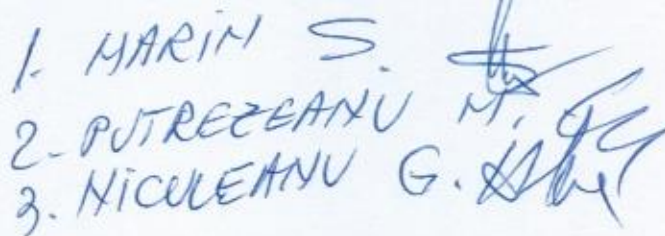 1. MARIN S.
2- PUTREZEANU M.
3. NICULEANU G.